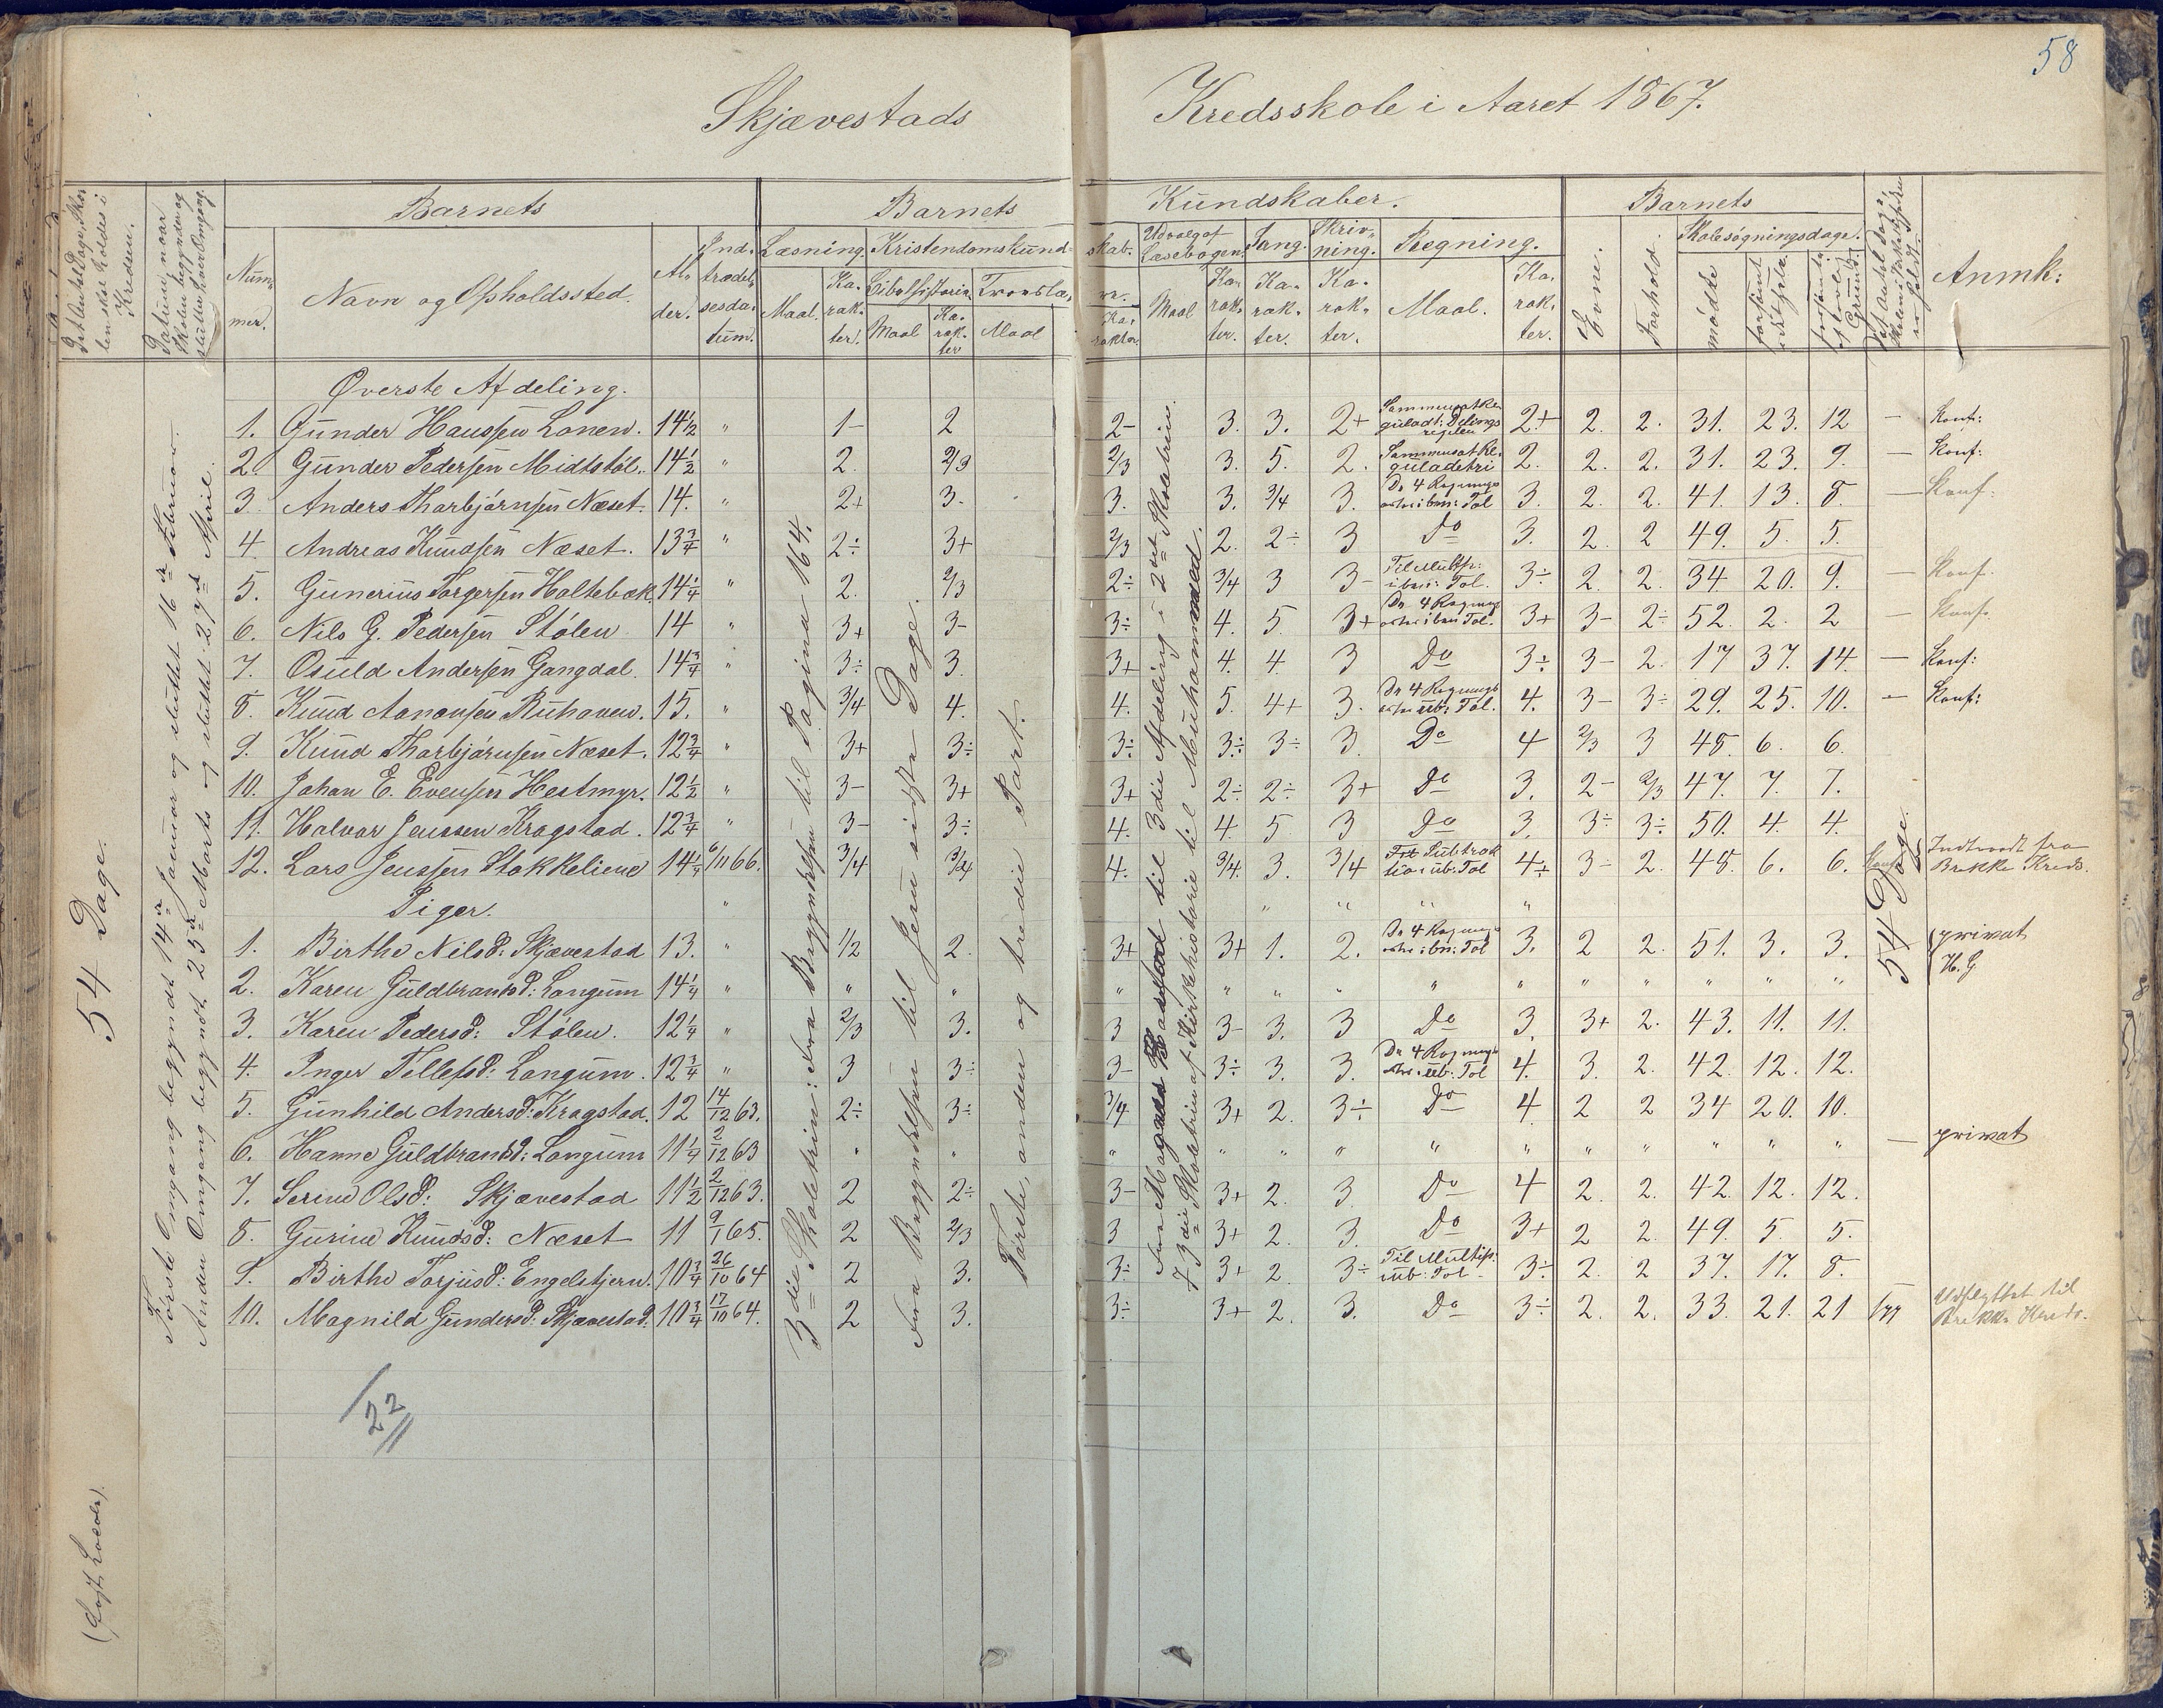 58
Skjævestads Kredsskole i Aaret 1867.
Det Antal Dage, Skolen skal holdes i Kredsen.
Datum, naar Skolen begynder og slutter hver Omgang.
Barnets
Nummer.
Navn og Opholdssted.
Alder.
Indtrædelsesdatum.
Barnets Kundskaber.
Læsning.
Maal.
Karakter.
Kristendomskundskab.
Bibelhistorie.
Maal
Karakter
Troeslære.
Maal
Karakter.
Udvalg af Læsebogen.
Maal
Karakter.
Sang.
Karakter.
Skrivning.
Karakter.
Regning.
Maal.
Karakter.
Barnets
Evne.
Forhold.
Skolesøgningsdage.
mødte
forsømt
forsømt af lovl. Grund.
Anmk:
54 Dage.
(Fast Locale).
Første Omgang begyndt 14de Januar og sluttet 16de Februar.
Anden Omgang begyndt 25de Marts og sluttet 27de April.
3die Skoletrin: Fra Begyndelsen til Pagina 164.
Fra Begyndelsen til Jesu sidste Dage.
Første, anden og tredie Part.
7 3die Skoletrin af Kirkehistorie til Muhammed.
54 Dage.
Øverste Afdeling.
1. Gunder Hanssen Lonen. 14½ " 1- 2 2- 3. 3. 2+ 2+ 2. 2. 31. 23. 12 — Konf:
2. Gunder Pedersen Midtstøl. 14½ " 2. 2/3 2/3 3. 5. 2. 2. 2. 2. 31. 23. 9. — Konf:
3. Anders Tharbjørnsen Næset. 14. " 2+ 3. 3. 3. 3/4 3. De 4 Regningsarter i ben: Tal 3. 2. 2. 41. 13. 8. — Konf:
4. Andreas Knudsen Næset. 13¾ " 2÷ 3+ 2/3 2. 2÷ 3 Do 3. 2. 2 49. 5. 5.
5. Gunerius Torgersen Holtebæk. 14¼ " 2. 2/3 2÷ 3/4 3 3- Til Multip: i ben: Tal. 3÷ 2. 2. 34. 20. 9. — Konf.
6. Nils G. Pedersen Stølen 14 " 3+ 3- 3÷ 4. 5. 3+ De 4 Regningsarter i ben Tal. 3+ 3- 2÷ 52. 2. 2 — Konf.
7. Osuld Andersen Gangdal. 14¾ " 3÷ 3. 3+ 4. 4. 3 Do 3÷ 3- 2. 17 37. 14. — Konf:
8. Knud Aanonsen Ruhaven. 15. " 3/4 4. 4. 5. 4+ 3. De 4 Regningsarter i ub: Tal. 4. 3- 3÷ 29. 25. 10. — Konf:
9. Knud Tharbjørnsen Næset. 12¾ " 3+ 3÷ 3÷ 3÷ 3÷ 3. Do 4 2/3 3 48. 6. 6.
10. Johan E. Evensen Hestmyr. 12½ " 3- 3+ 3+ 2÷ 2÷ 3+ Do 3. 2- 2/3 47. 7. 7.
11. Halvor Jenssen Kragstad. 12¾ " 3- 3÷ 4. 4. 5 3 Do 3. 3÷ 3÷ 50. 4. 4.
12. Lars Jenssen Stokkeliene 14¼ 6/11 66. 3/4 3/4 4. 3/4. 3. 3/4 4÷ 3- 2. 48. 6. 6. Konf Indtraadt fra Brekke Kreds.
Piger.
1. Birthe Nilsd: Skjævestad 13. " 1/2 2. 3+ 3+ 1. 2. De 4 Regningsarter i ben: Tal 3. 2 2. 51. 3. 3. privat H. G.
2. Karen Guldbrandsd: Longum 14¼ " " " " " " " " " " " " " "
3. Karen Pedersd: Stølen. 12¼ " 2/3 3. 3 3- 3. 3 Do 3. 3+ 2. 43. 11. 11.
4. Inger Tellefsd: Longum. 12¾ " 3 3÷ 3- 3÷ 3. 3. De 4 Regningsarter i ub: Tal 4. 3. 2. 42. 12. 12.
5. Gunhild Andersd: Kragstad. 12 14/12 63. 2÷ 3÷ 3/4 3+ 2. 3÷ Do 4 2 2 34 20. 10.
6. Hanne Guldbrandsd: Longum 11¼ 2/12 63 " " " " " " " " " " " " " — privat
7. Serine Olsd: Skjævestad 11½ 2/12 63. 2 2÷ 3- 3+ 2. 3. Do 4 2. 2. 42. 12. 12.
8. Gurine Knudsd: Næset 11 9/1 65. 2 2/3 3 3+ 2. 3. Do 3+ 2 2. 49. 5. 5.
9. Birthe Torjusd: Engelstjern. 10¾ 26/10 64 2 3. 3÷ 3+ 2. 3÷ Til Multip: i ub: Tal 3÷ 2. 2 37. 17. 8.
10. Magnild Gundersd: Skjævestad. 10¾ 17/10 64. 2 3. 3÷ 3+ 2. 3. Do 3÷ 2. 2. 33. 21. 21 Udflyttet til Brekke Kreds.
22